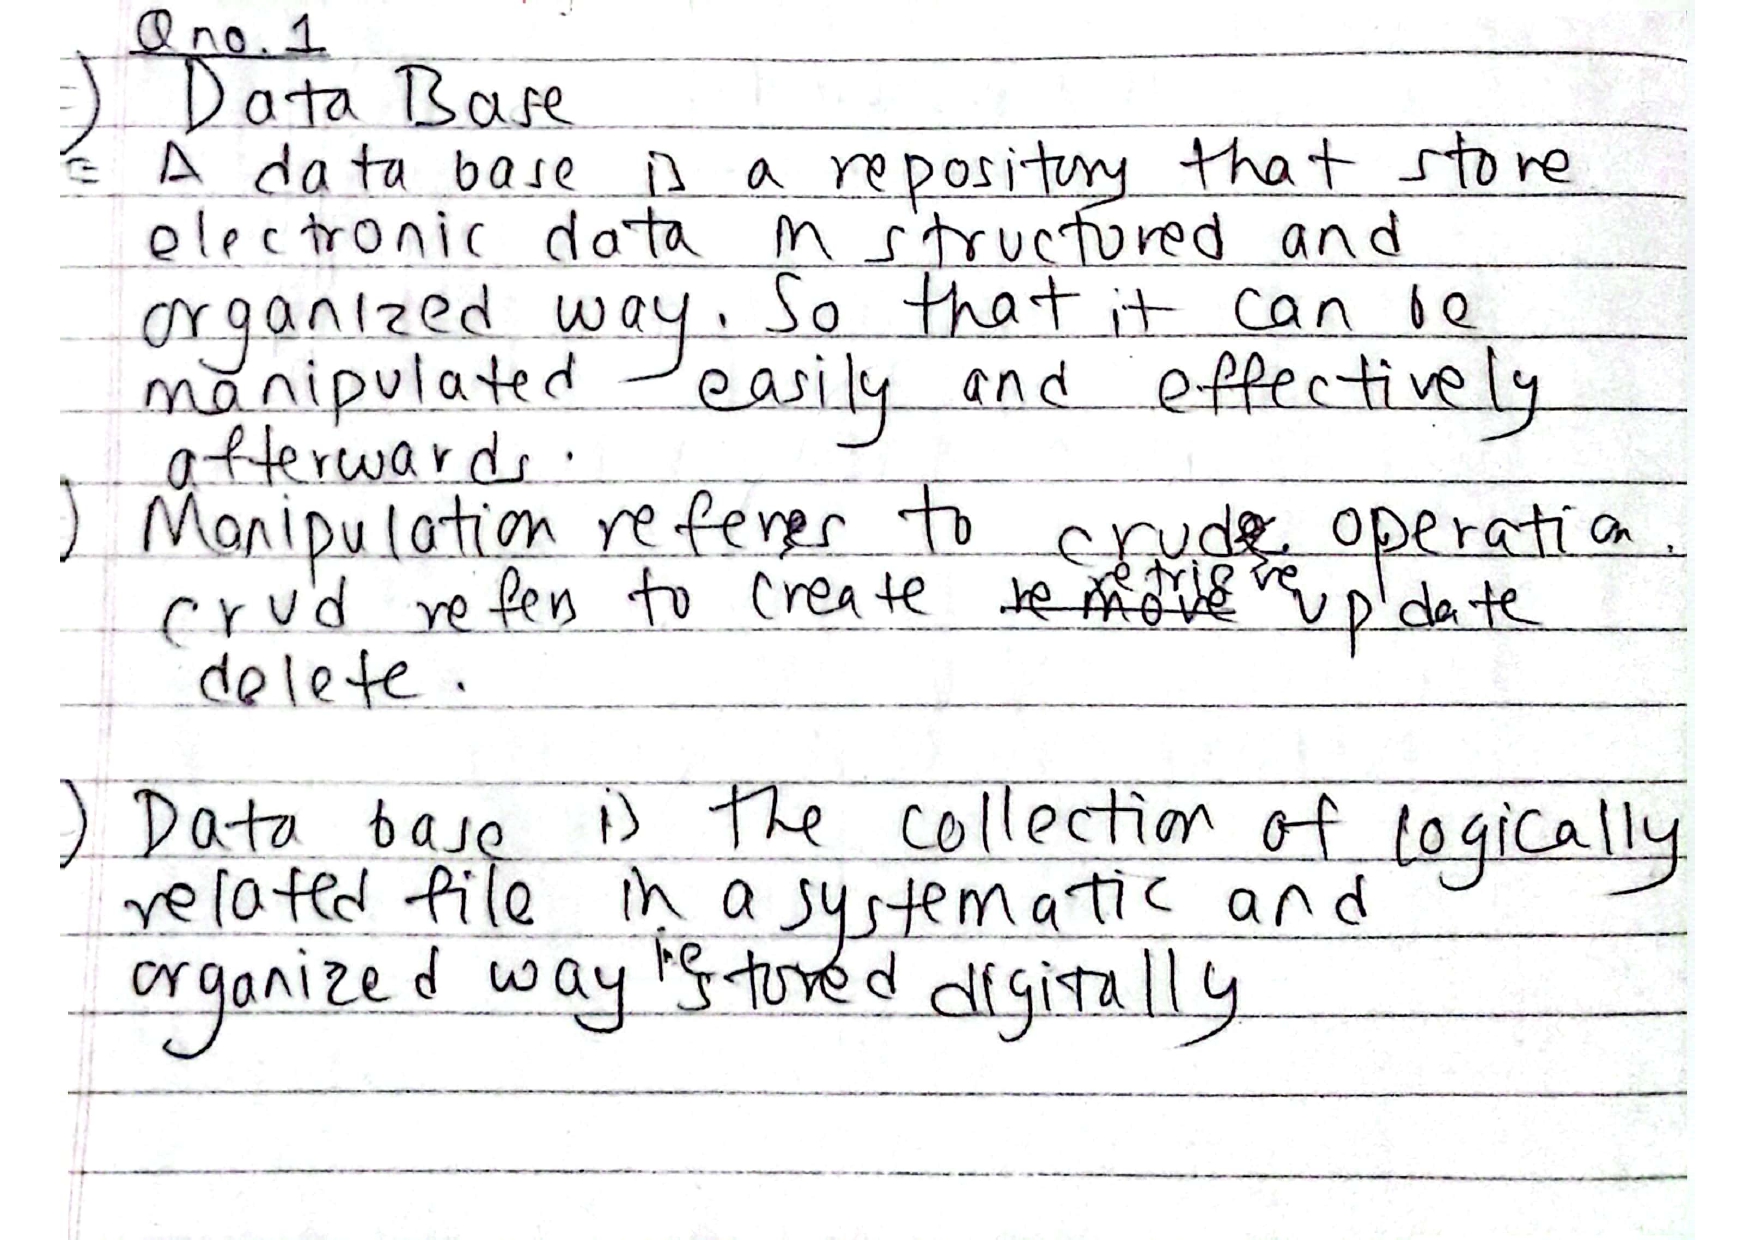 Q no. 1
=) Data Base
= A data base is a repository that store
electronic data in structured and
organized way. So that it can be
manipulated easily and effectively
afterwards.
) Manipulation referes to crud operation.
crud refers to create retrieve update
delete.
) Data base is the collection of logically
related file in a systematic and
organized way is stored digitally